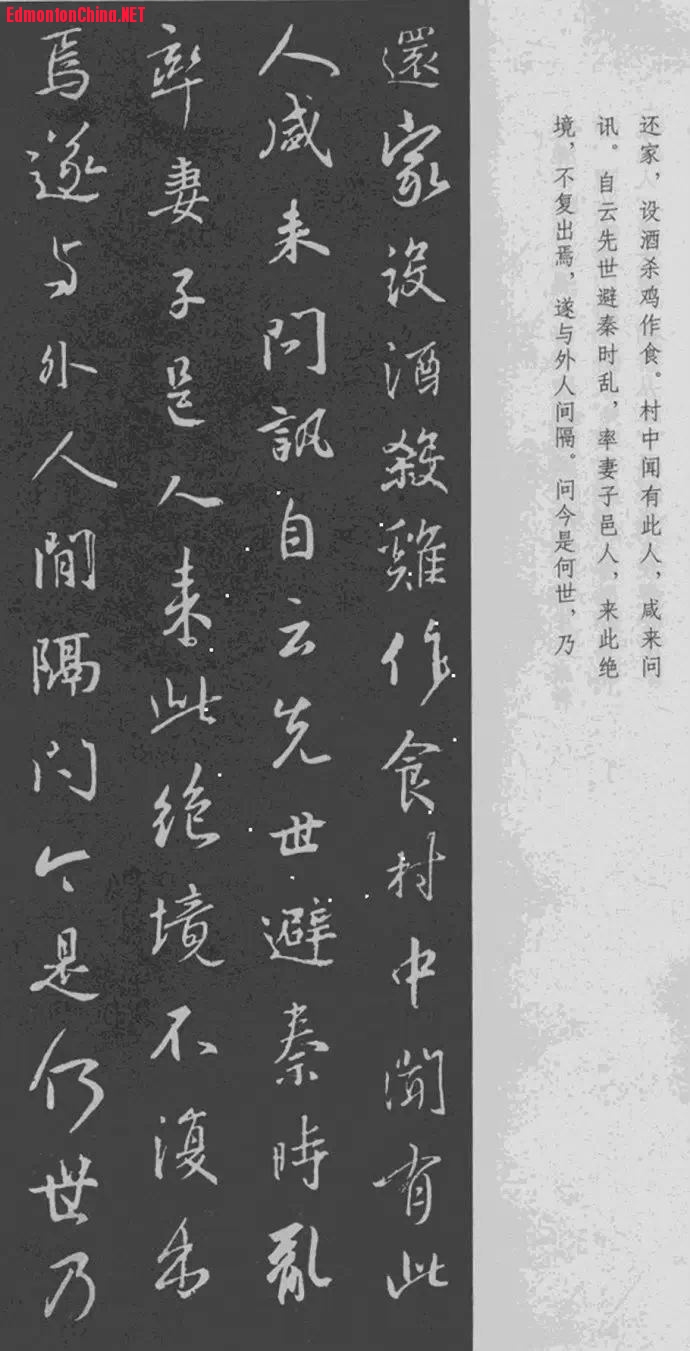 EdmontonChina.NET
还家，设酒杀鸡作食。村中闻有此人，咸来问
讯。自云先世避秦时乱，率妻子邑人，来此绝
境，不复出焉，遂与外人间隔。问今是何世，乃
還家設酒殺雞作食村中聞有此
人咸来問訊自云先世避秦時亂
率妻子邑人来此绝境不復出
焉遂与外人間隔问今是何世乃